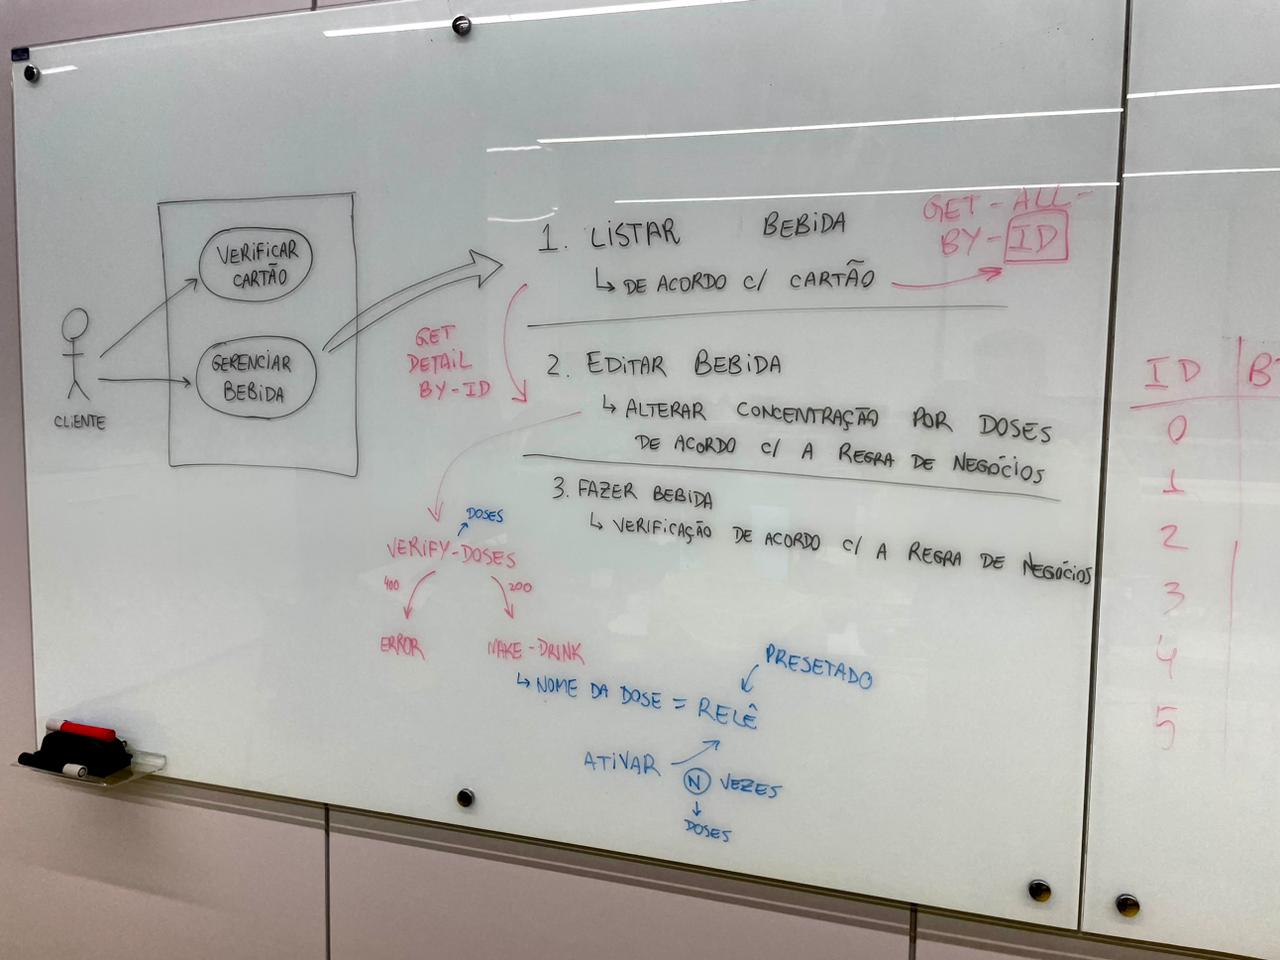 VERIFICAR
CARTÃO
GERENCIAR
BEBIDA
CLIENTE
1. LISTAR BEBIDA
↳ DE ACORDO C/ CARTÃO
GET-ALL-
BY-ID
GET
DETAIL
BY-ID
2. EDITAR BEBIDA
↳ ALTERAR CONCENTRAÇÃO POR DOSES
DE ACORDO C/ A REGRA DE NEGÓCIOS
3. FAZER BEBIDA
↳ VERIFICAÇÃO DE ACORDO C/ A REGRA DE NEGÓCIOS
DOSES
VERIFY-DOSES
400
200
ERROR
MAKE-DRINK
↳ NOME DA DOSE = RELÊ
PRESETADO
ATIVAR
N VEZES
DOSES
ID
0
1
2
3
4
5